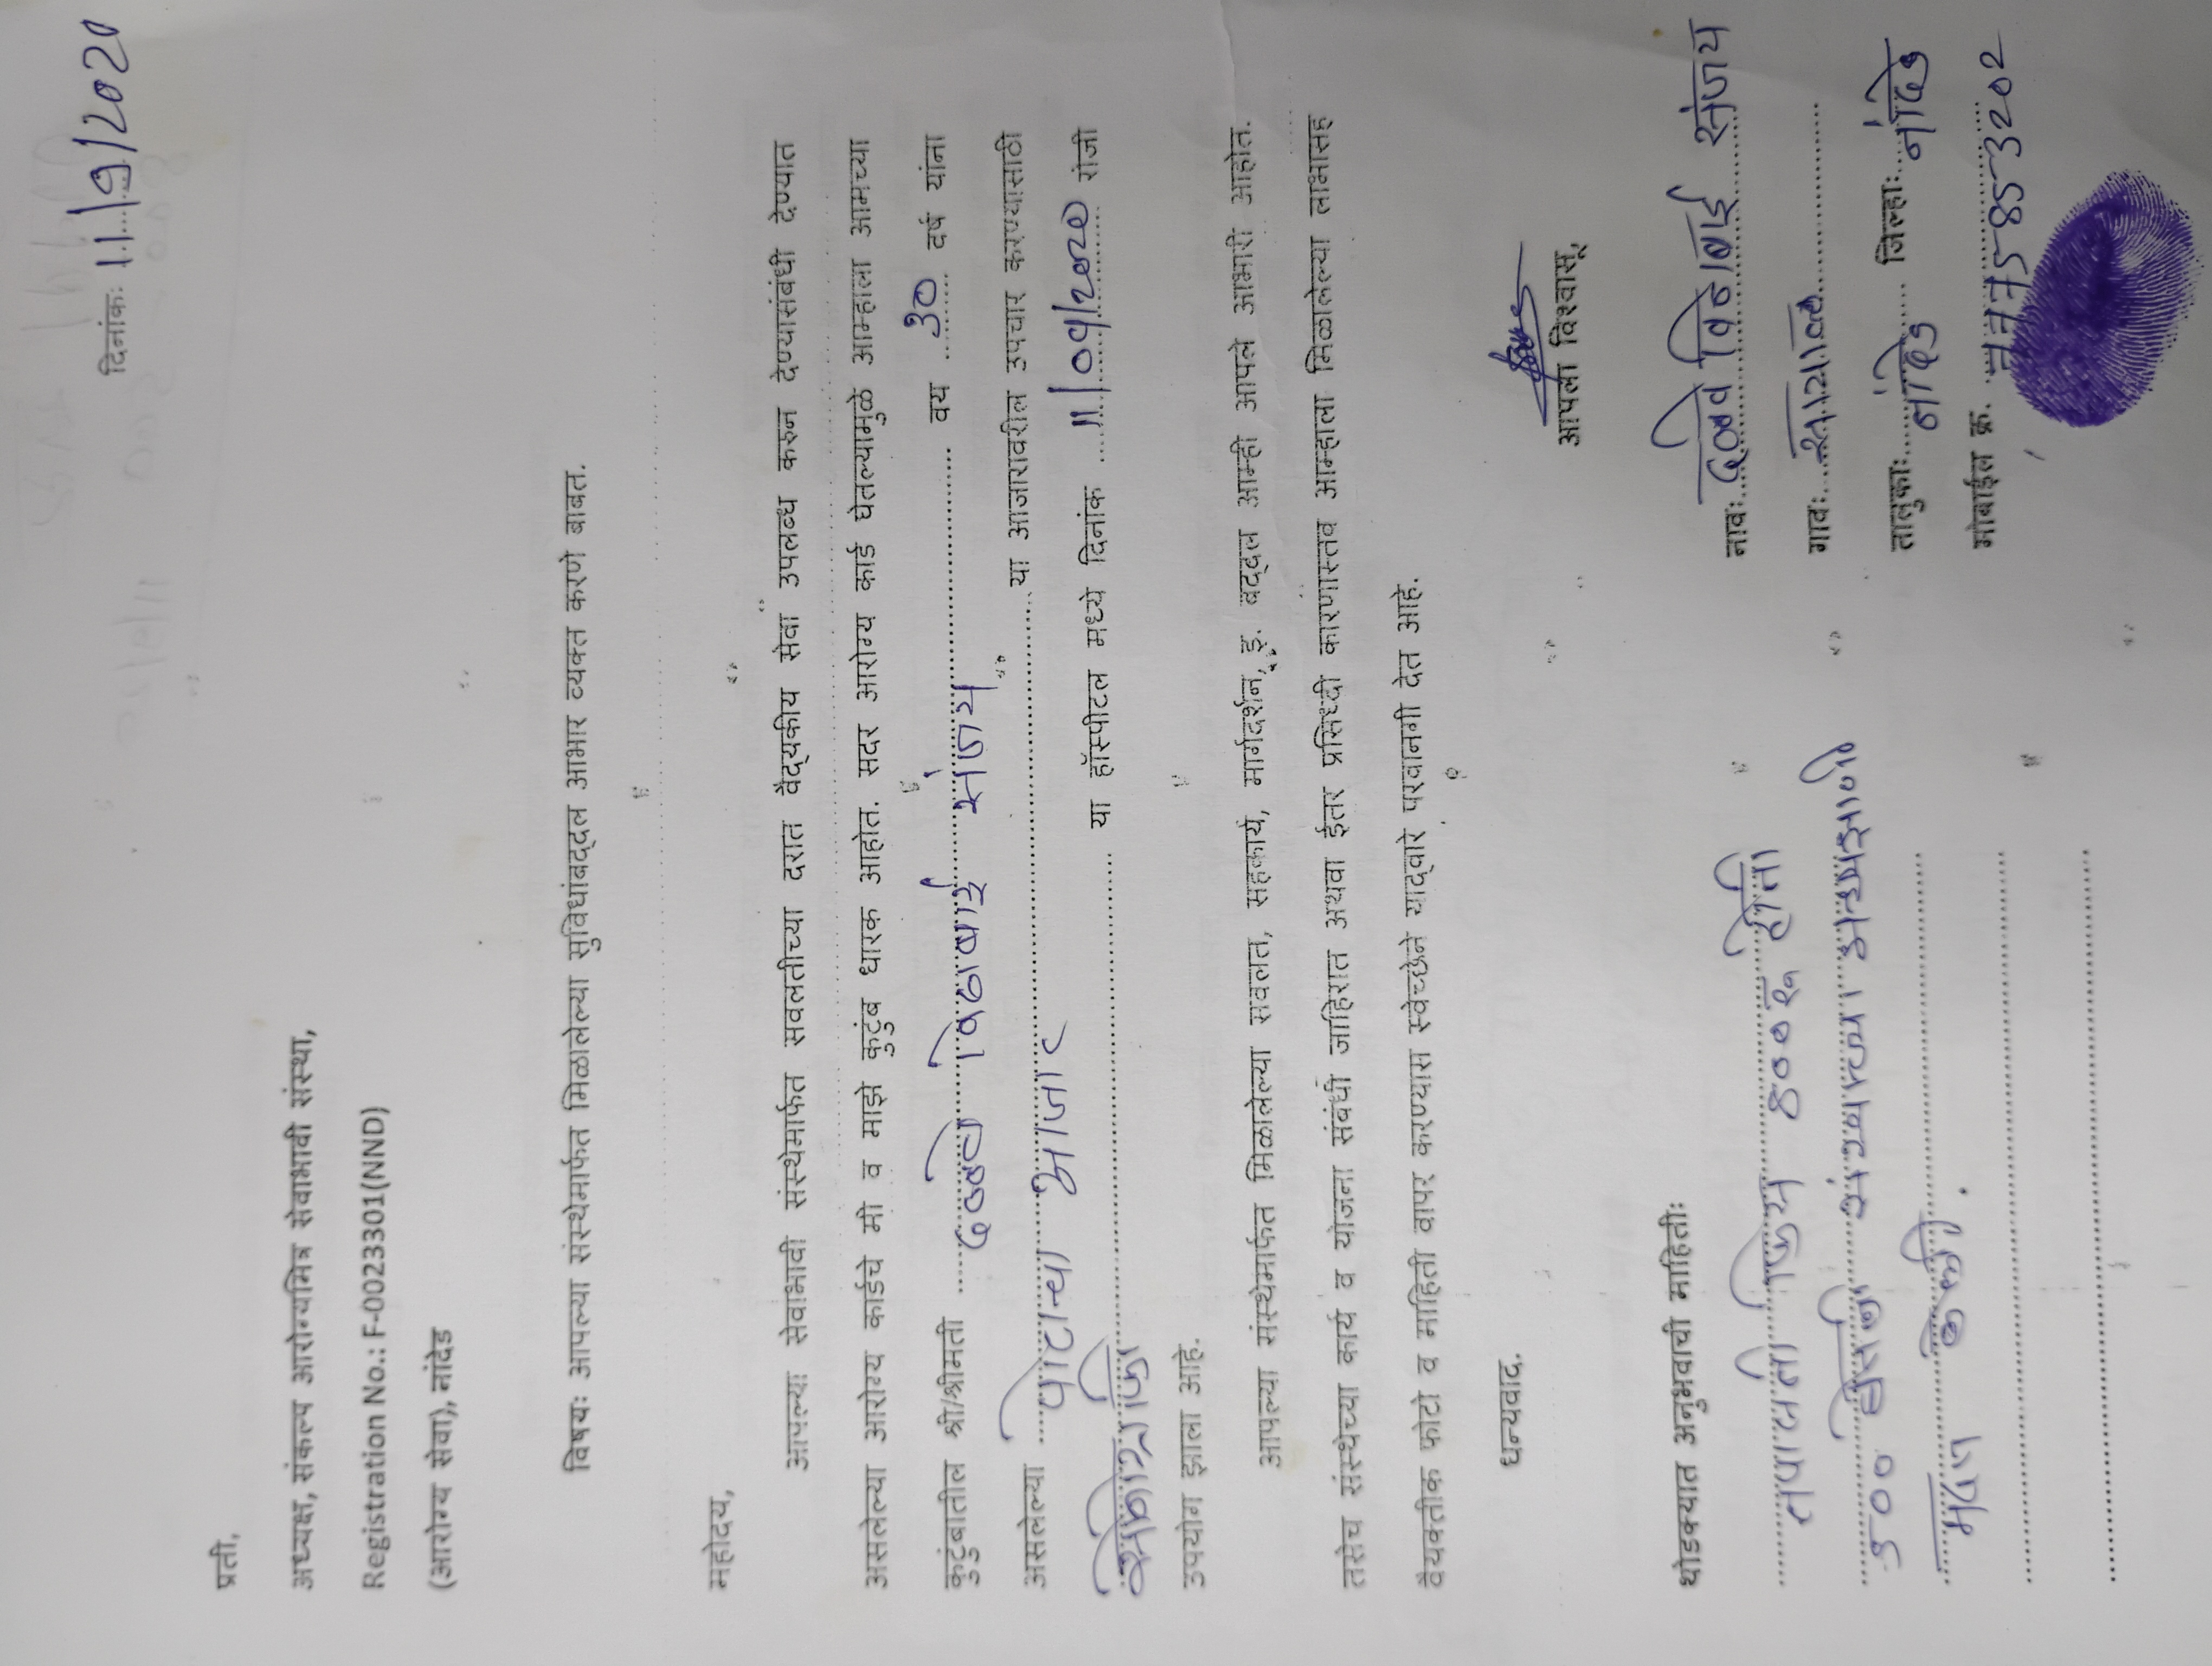 दिनांक: 11/9/2020
प्रती,
अध्यक्ष, संकल्प आरोग्यमित्र सेवाभावी संस्था,
Registration No.: F-0023301(NND)
(आरोग्य सेवा), नांदेड
विषय: आपल्या संस्थेमार्फत मिळालेल्या सुविधांबद्दल आभार व्यक्त करणे बाबत.
महोदय,
आपल्या सेवाभावी संस्थेमार्फत सवलतीच्या दरात वैद्यकीय सेवा उपलब्ध करुन देण्यासंबंधी देण्यात
असलेल्या आरोग्य कार्डचे मी व माझे कुटुंब धारक आहोत. सदर आरोग्य कार्ड घेतल्यामुळे आम्हाला आमच्या
कुटुंबातील श्री/श्रीमती विठाबाई संजय वय 30 वर्ष यांना
असलेल्या पोटाच्या आजार या आजारावरील उपचार करण्यासाठी
या हॉस्पीटल मध्ये दिनांक 11/09/2020 रोजी
उपयोग झाला आहे.
आपल्या संस्थेमार्फत मिळालेल्या सवलत, सहकार्य, मार्गदर्शन, इ. बद्दल आम्ही आपले आभारी आहोत.
तसेच संस्थेच्या कार्य व योजना संबंधी जाहिरात अथवा ईतर प्रसिध्दी कारणास्तव आम्हाला मिळालेल्या लाभासह
वैयक्तीक फोटो व माहिती वापर करण्यास स्वेच्छेने याद्वारे परवानगी देत आहे.
धन्यवाद.
आपला विश्वासू,
थोडक्यात अनुभवाची माहिती:
तपासनी फिस 400 रु होती
300 घेतली संस्थाच्या
मदत केली.
नाव: विठाबाई संजय
गाव:
तालुका: नांदेड जिल्हा: नांदेड
मोबाईल क्र.